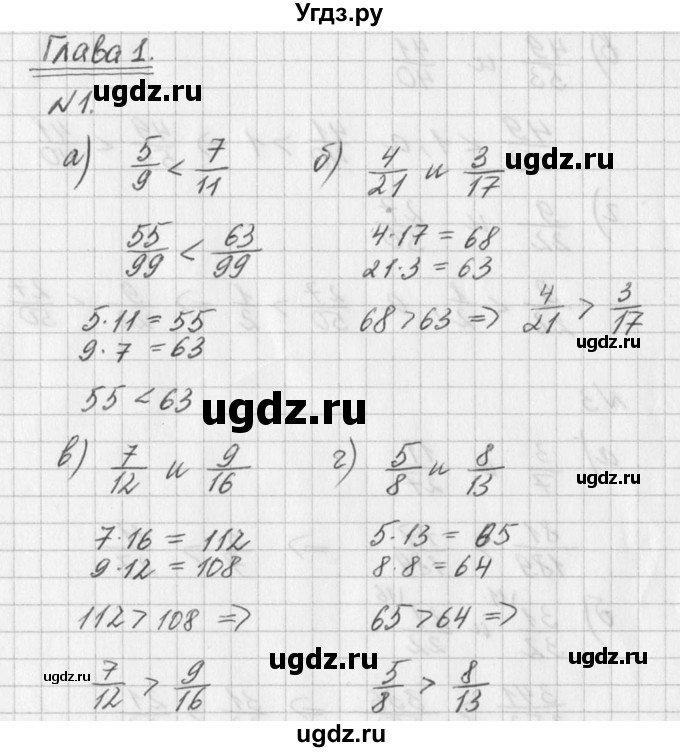 Угдз.ру
Глава 1.
ugdz.ru
№1.
а) 5/9 < 7/11
б) 4/21 и 3/17
ugdz.ru
55/99 < 63/99
4·17 = 68
21·3 = 63
5·11 = 55
9·7 = 63
68 > 63 => 4/21 > 3/17
ugdz.ru
55 < 63
ugdz.ru
в) 7/12 и 9/16
г) 5/8 и 8/13
7·16 = 112
9·12 = 108
5·13 = 65
8·8 = 64
ugdz.ru
112 > 108 =>
65 > 64 =>
ugdz.ru
ugdz.ru
7/12 > 9/16
5/8 > 8/13
ugdz.ru
ugdz.ru